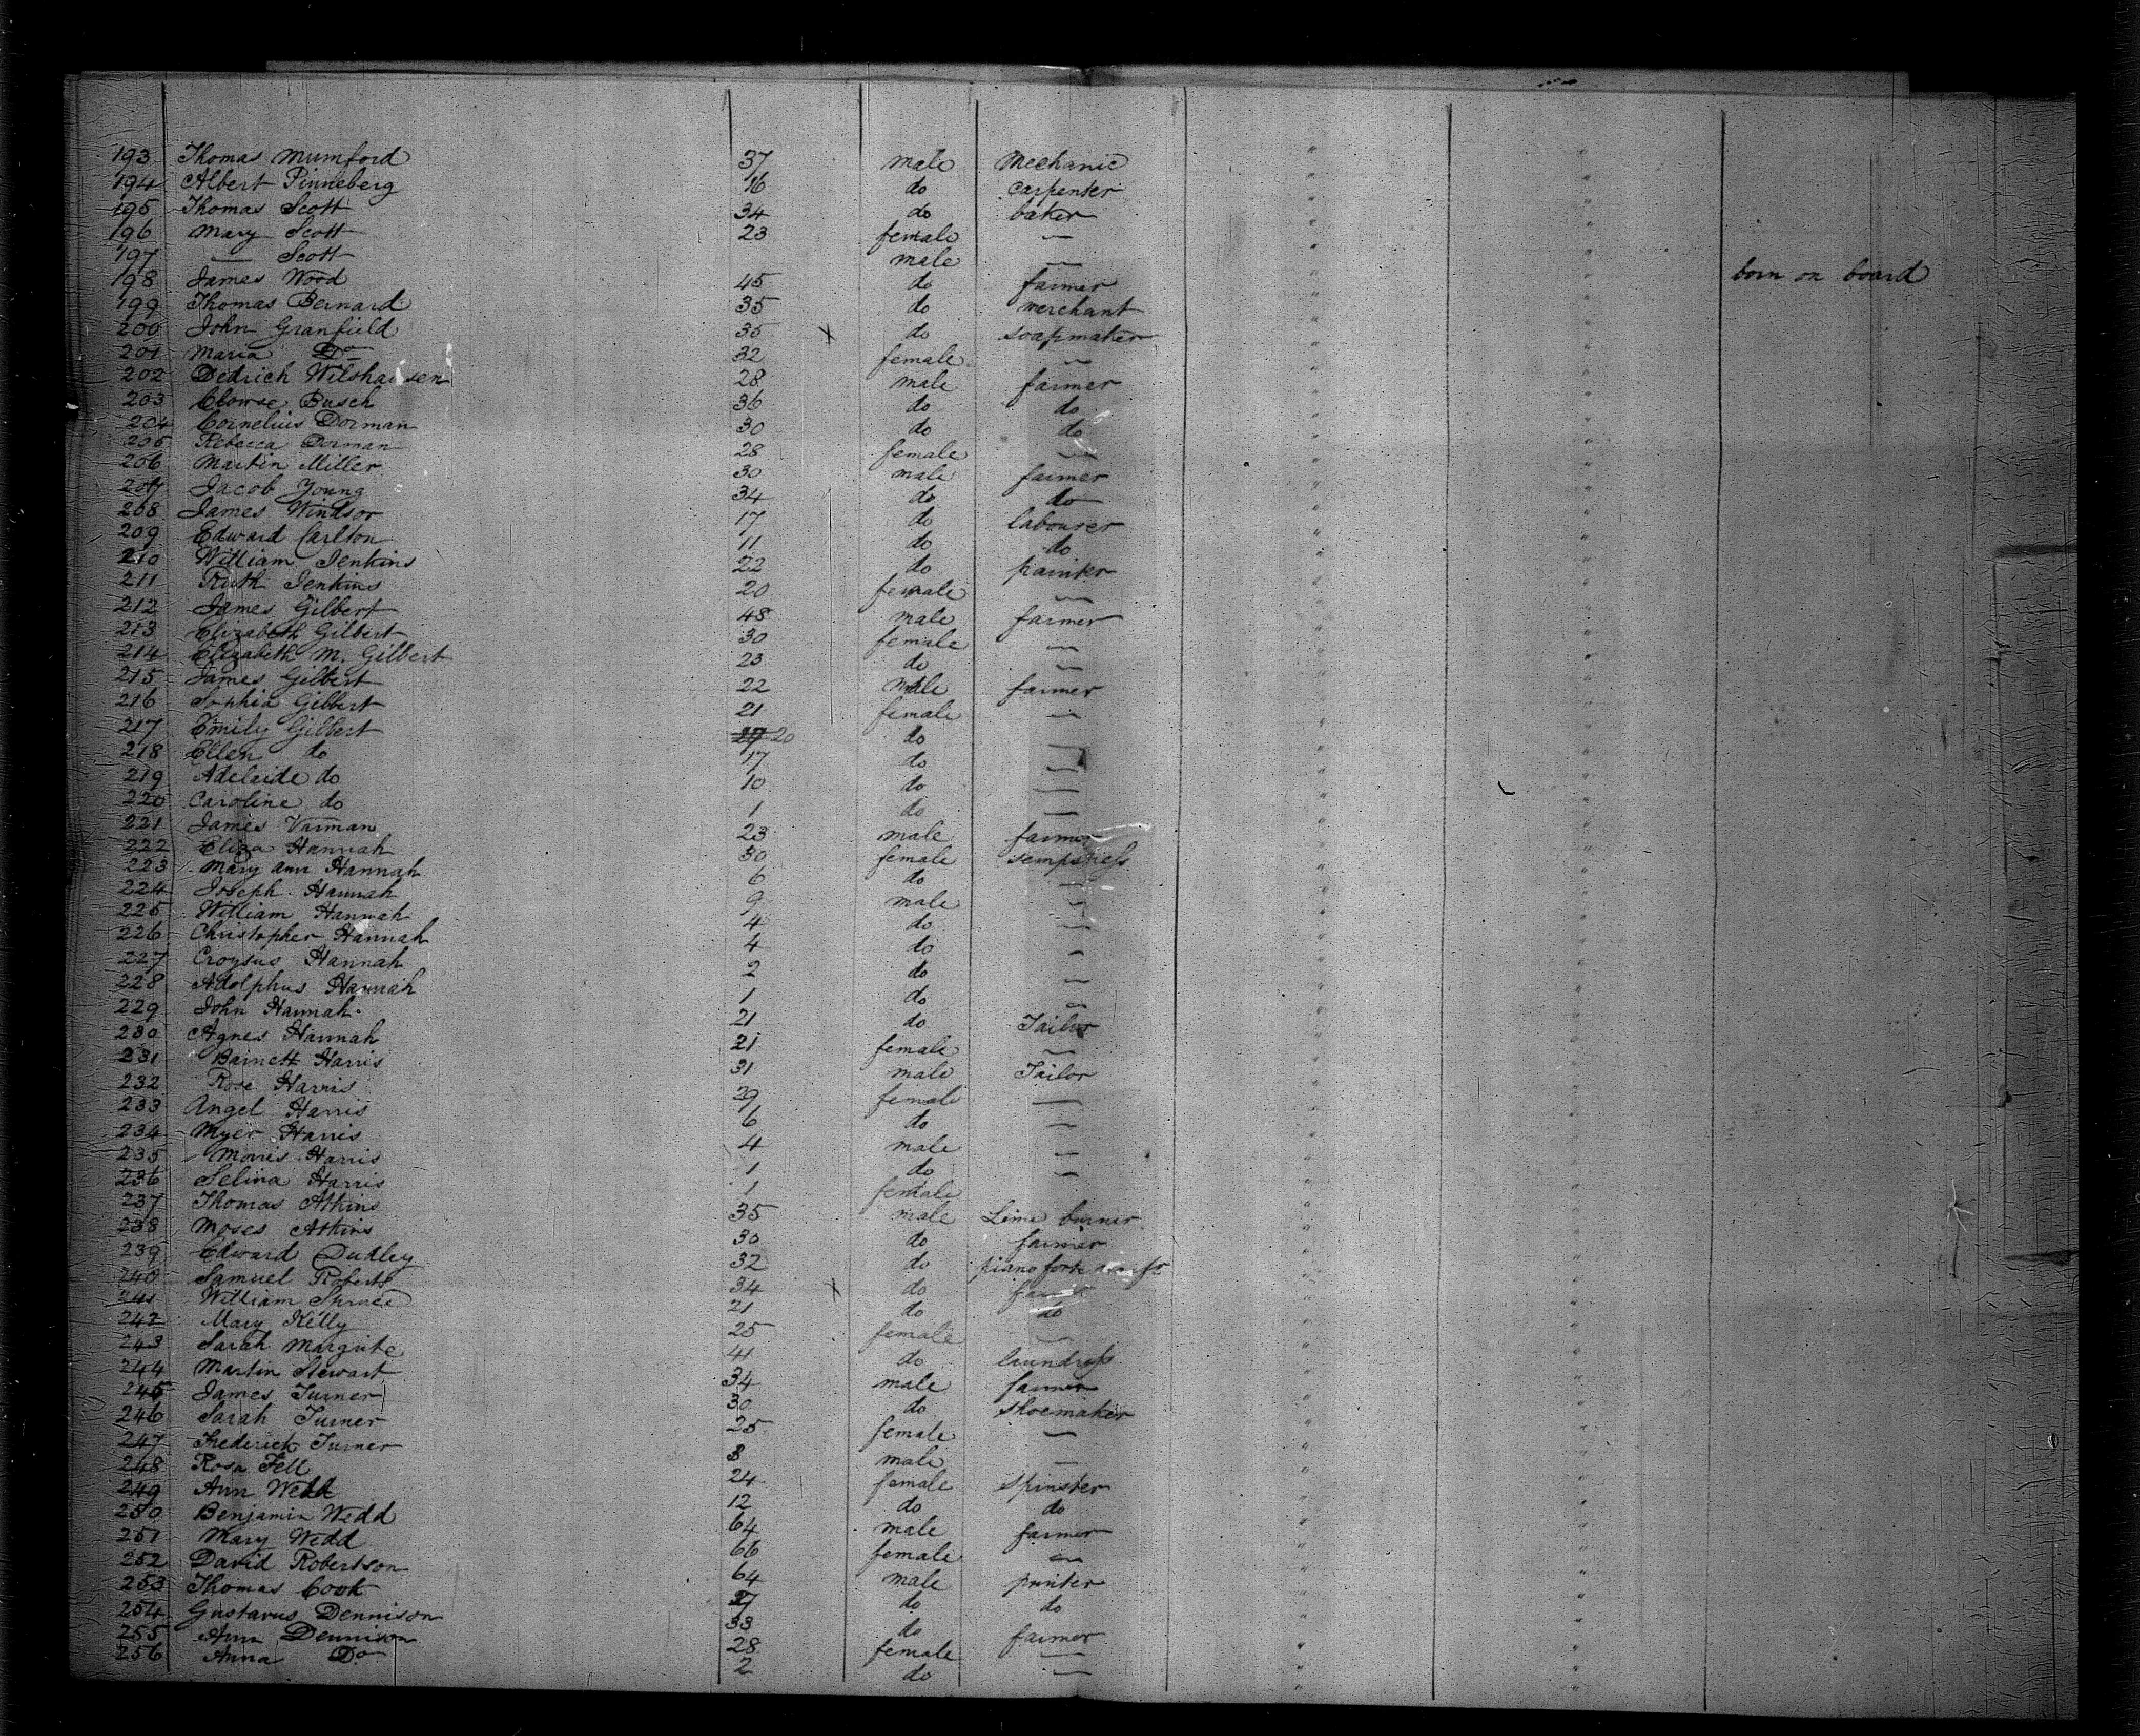 193 Thomas Mumford 37 male Mechanic " "
194 Albert Pinneberg 16 do Carpenter " "
195 Thomas Scott 34 do baker " "
196 Mary Scott 23 female — " "
197 — Scott male — " " born on board
198 James Wood 45 do farmer " "
199 Thomas Bernard 35 do merchant " "
200 John Granfield 35 x do soapmaker " "
201 Maria Do 32 female — " "
202 Dedrich Wilshausen 28 male farmer " "
203 Clowse Busch 36 do do " "
204 Cornelius Dorman 30 do do " "
205 Rebecca Dorman 28 female — " "
206 Martin Miller 30 male farmer " "
207 Jacob Young 34 do do " "
208 James Windsor 17 do labourer " "
209 Edward Carlton 11 do do " "
210 William Jenkins 22 do painter " "
211 Ruth Jenkins 20 female — " "
212 James Gilbert 48 male farmer " "
213 Elizabeth Gilbert 30 female — " "
214 Elizabeth M. Gilbert 23 do — " "
215 James Gilbert 22 male farmer " "
216 Sophia Gilbert 21 female — " "
217 Emily Gilbert 20 do — " "
218 Ellen do 17 do — " "
219 Adelaide do 10 do — " "
220 Caroline do 1 do — " "
221 James Varman 23 male farmer " "
222 Eliza Hannah 30 female sempstress " "
223 Mary ann Hannah 6 do — " "
224 Joseph Hannah 9 male — " "
225 William Hannah 4 do — " "
226 Christopher Hannah 4 do — " "
227 Croysus Hannah 2 do — " "
228 Adolphus Hannah 1 do — " "
229 John Hannah 21 do Tailor " "
230 Agnes Hannah 21 female — " "
231 Barnett Harris 31 male Tailor " "
232 Rose Harris 29 female — " "
233 Angel Harris 6 do — " "
234 Myer Harris 4 male — " "
235 Morris Harris 1 do — " "
236 Selina Harris 1 female " "
237 Thomas Atkins 35 male Lime burner " "
238 Moses Atkins 30 do farmer " "
239 Edward Dudley 32 do piano forte " "
240 Samuel Roberts 34 x do farmer " "
241 William Spruce 21 do do " "
242 Mary Kelly 25 female — " "
243 Sarah Margrite 41 do laundress " "
244 Martin Stewart 34 male farmer " "
245 James Turner 30 do Shoemaker " "
246 Sarah Turner 25 female — " "
247 Frederick Turner 3 male — " "
248 Rosa Fell 24 female Spinster " "
249 Ann Wedd 12 do do " "
250 Benjamin Wedd 64 male farmer " "
251 Mary Wedd 66 female — " "
252 David Robertson 64 male printer " "
253 Thomas Cook 27 do do " "
254 Gustavus Dennison 33 do farmer " "
255 Ann Dennison 28 female — " "
256 Anna Do 2 do — " "